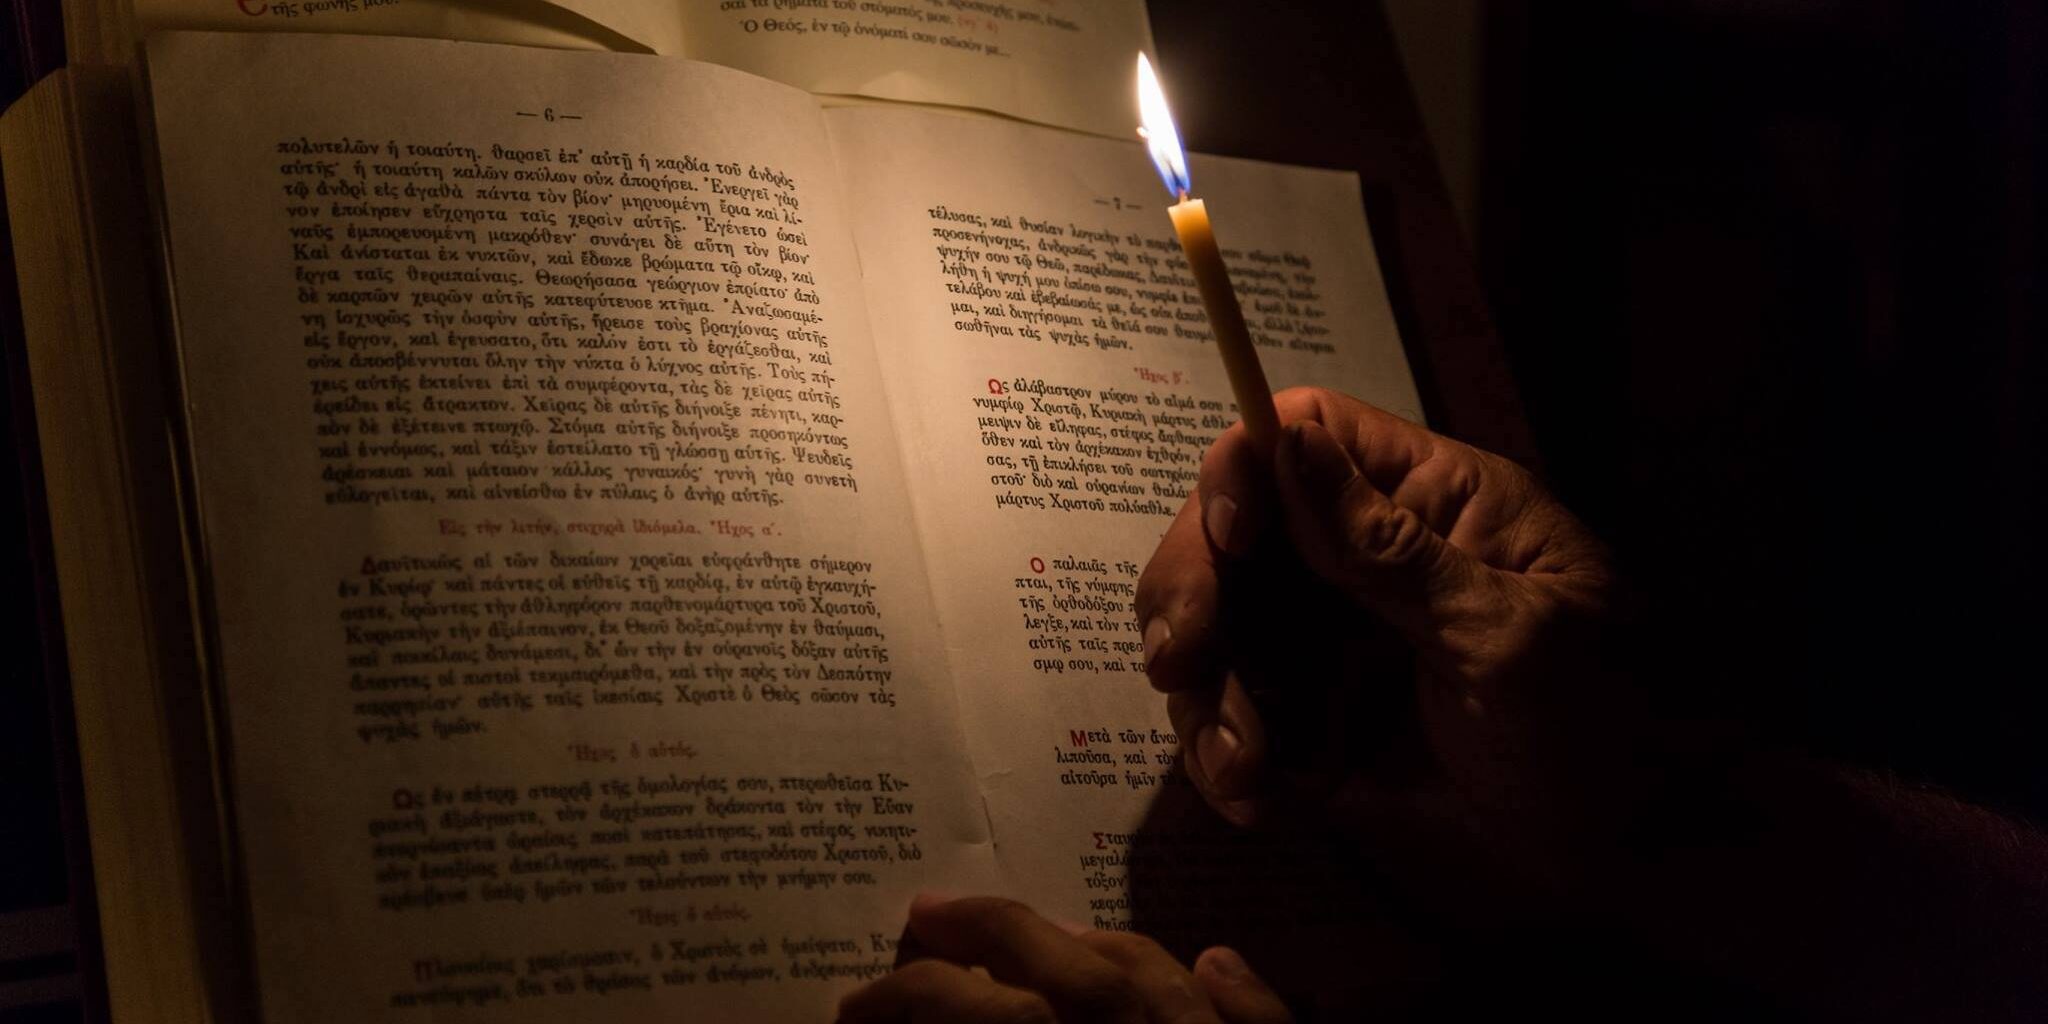 τῆς φωνῆς μου.
σαι τὰ ῥήματα τοῦ στόματός μου.
Ὁ Θεός, ἐν τῷ ὀνόματί σου σῶσόν με...
— 6 —
πολυτελῶν ἡ τοιαύτη. θαρσεῖ ἐπ' αὐτῇ ἡ καρδία τοῦ ἀνδρὸς
αὐτῆς· ἡ τοιαύτη καλῶν σκύλων οὐκ ἀπορήσει. Ἐνεργεῖ γὰρ
τῷ ἀνδρὶ εἰς ἀγαθὰ πάντα τὸν βίον· μηρυομένη ἔρια καὶ λί-
νον ἐποίησεν εὔχρηστα ταῖς χερσὶν αὐτῆς. Ἐγένετο ὡσεὶ
ναῦς ἐμπορευομένη μακρόθεν· συνάγει δὲ αὕτη τὸν βίον·
Καὶ ἀνίσταται ἐκ νυκτῶν, καὶ ἔδωκε βρώματα τῷ οἴκῳ, καὶ
ἔργα ταῖς θεραπαίναις. Θεωρήσασα γεώργιον ἐπρίατο· ἀπὸ
δὲ καρπῶν χειρῶν αὐτῆς κατεφύτευσε κτῆμα. Ἀναζωσαμέ-
νη ἰσχυρῶς τὴν ὀσφὺν αὐτῆς, ἤρεισε τοὺς βραχίονας αὐτῆς
εἰς ἔργον, καὶ ἐγεύσατο, ὅτι καλόν ἐστι τὸ ἐργάζεσθαι, καὶ
οὐκ ἀποσβέννυται ὅλην τὴν νύκτα ὁ λύχνος αὐτῆς. Τοὺς πή-
χεις αὐτῆς ἐκτείνει ἐπὶ τὰ συμφέροντα, τὰς δὲ χεῖρας αὐτῆς
ἐρείδει εἰς ἄτρακτον. Χεῖρας δὲ αὐτῆς διήνοιξε πένητι, καρ-
πὸν δὲ ἐξέτεινε πτωχῷ. Στόμα αὐτῆς διήνοιξε προσηκόντως
καὶ ἐννόμως, καὶ τάξιν ἐστείλατο τῇ γλώσσῃ αὐτῆς. Ψευδεῖς
ἀρέσκειαι καὶ μάταιον κάλλος γυναικός· γυνὴ γὰρ συνετὴ
εὐλογεῖται, καὶ αἰνείσθω ἐν πύλαις ὁ ἀνὴρ αὐτῆς.
Εἰς τὴν λιτήν, στιχηρὰ ἰδιόμελα. Ἦχος α΄.
Δαυϊτικῶς αἱ τῶν δικαίων χορεῖαι εὐφράνθητε σήμερον
ἐν Κυρίῳ· καὶ πάντες οἱ εὐθεῖς τῇ καρδίᾳ, ἐν αὐτῷ ἐγκαυχή-
σατε, ὁρῶντες τὴν ἀθληφόρον παρθενομάρτυρα τοῦ Χριστοῦ,
Κυριακὴν τὴν ἀξιέπαινον, ἐκ Θεοῦ δοξαζομένην ἐν θαύμασι,
καὶ ποικίλαις δυνάμεσι, δι' ὧν τὴν ἐν οὐρανοῖς δόξαν αὐτῆς
ἅπαντες οἱ πιστοὶ τεκμαιρόμεθα, καὶ τὴν πρὸς τὸν Δεσπότην
παρρησίαν· αὐτῆς ταῖς ἱκεσίαις Χριστὲ ὁ Θεὸς σῶσον τὰς
ψυχὰς ἡμῶν.
Ἦχος ὁ αὐτός.
Ὡς ἐν πέτρᾳ στερρᾷ τῆς ὁμολογίας σου, πτερωθεῖσα Κυ-
ριακὴ ἀξιάγαστε, τὸν ἀρχέκακον δράκοντα τὸν τὴν Εὔαν
πτερνίσαντα ὡραίοις ποσὶ κατεπάτησας, καὶ στέφος νικητι-
κὸν ἐπαξίως ἀπείληφας, παρὰ τοῦ στεφοδότου Χριστοῦ, διὸ
πρέσβευε ὑπὲρ ἡμῶν τῶν τελούντων τὴν μνήμην σου.
Ἦχος ὁ αὐτός.
χαρίσμασιν, ὁ Χριστὸς σὲ ἠμείψατο, Κυ
ὅτι τὸ θράσος τῶν ἀνόμων, ἀνδρειοφρόν
— 7 —
τέλυσας, καὶ θυσίαν λογικὴν τὸ παρθε σου σῶμα Θεῷ
προσενήνοχας, ἀνδρικῶς γὰρ τὴν
ψυχήν σου τῷ Θεῷ, παρέδωκας,
λήθη ἡ ψυχή μου ὀπίσω σου, νυμφίε
τελάβου καὶ ἐβεβαίωσάς με, ὡς οὐκ
μαι, καὶ διηγήσομαι τὰ θεῖά σου θαυμά Ὅθεν αἴτησαι
σωθῆναι τὰς ψυχὰς ἡμῶν.
Ἦχος β΄.
Ὡς ἀλάβαστρον μύρου τὸ αἷμά σου
νυμφίῳ Χριστῷ, Κυριακὴ μάρτυς ἀθλη
μειψιν δὲ εἴληφας, στέφος ἄφθαρτο
ὅθεν καὶ τὸν ἀρχέκακον ἐχθρόν,
σας, τῇ ἐπικλήσει τοῦ σωτηρίου
στοῦ· διὸ καὶ οὐρανίων θαλά
μάρτυς Χριστοῦ πολύαθλε.
Ὁ παλαιᾶς τῆς
πται, τῆς νύμφης
τῆς ὀρθοδόξου π
λεγξε, καὶ τὸν τύ
αὐτῆς ταῖς πρεσ
σμῳ σου, καὶ τα
Μετὰ τῶν ἄνω
λιποῦσα, καὶ τὸν
αἰτοῦσα ἡμῖν τ
Σταυρ
μεγαλ
τόξον
κεφαλ
θεῖσα